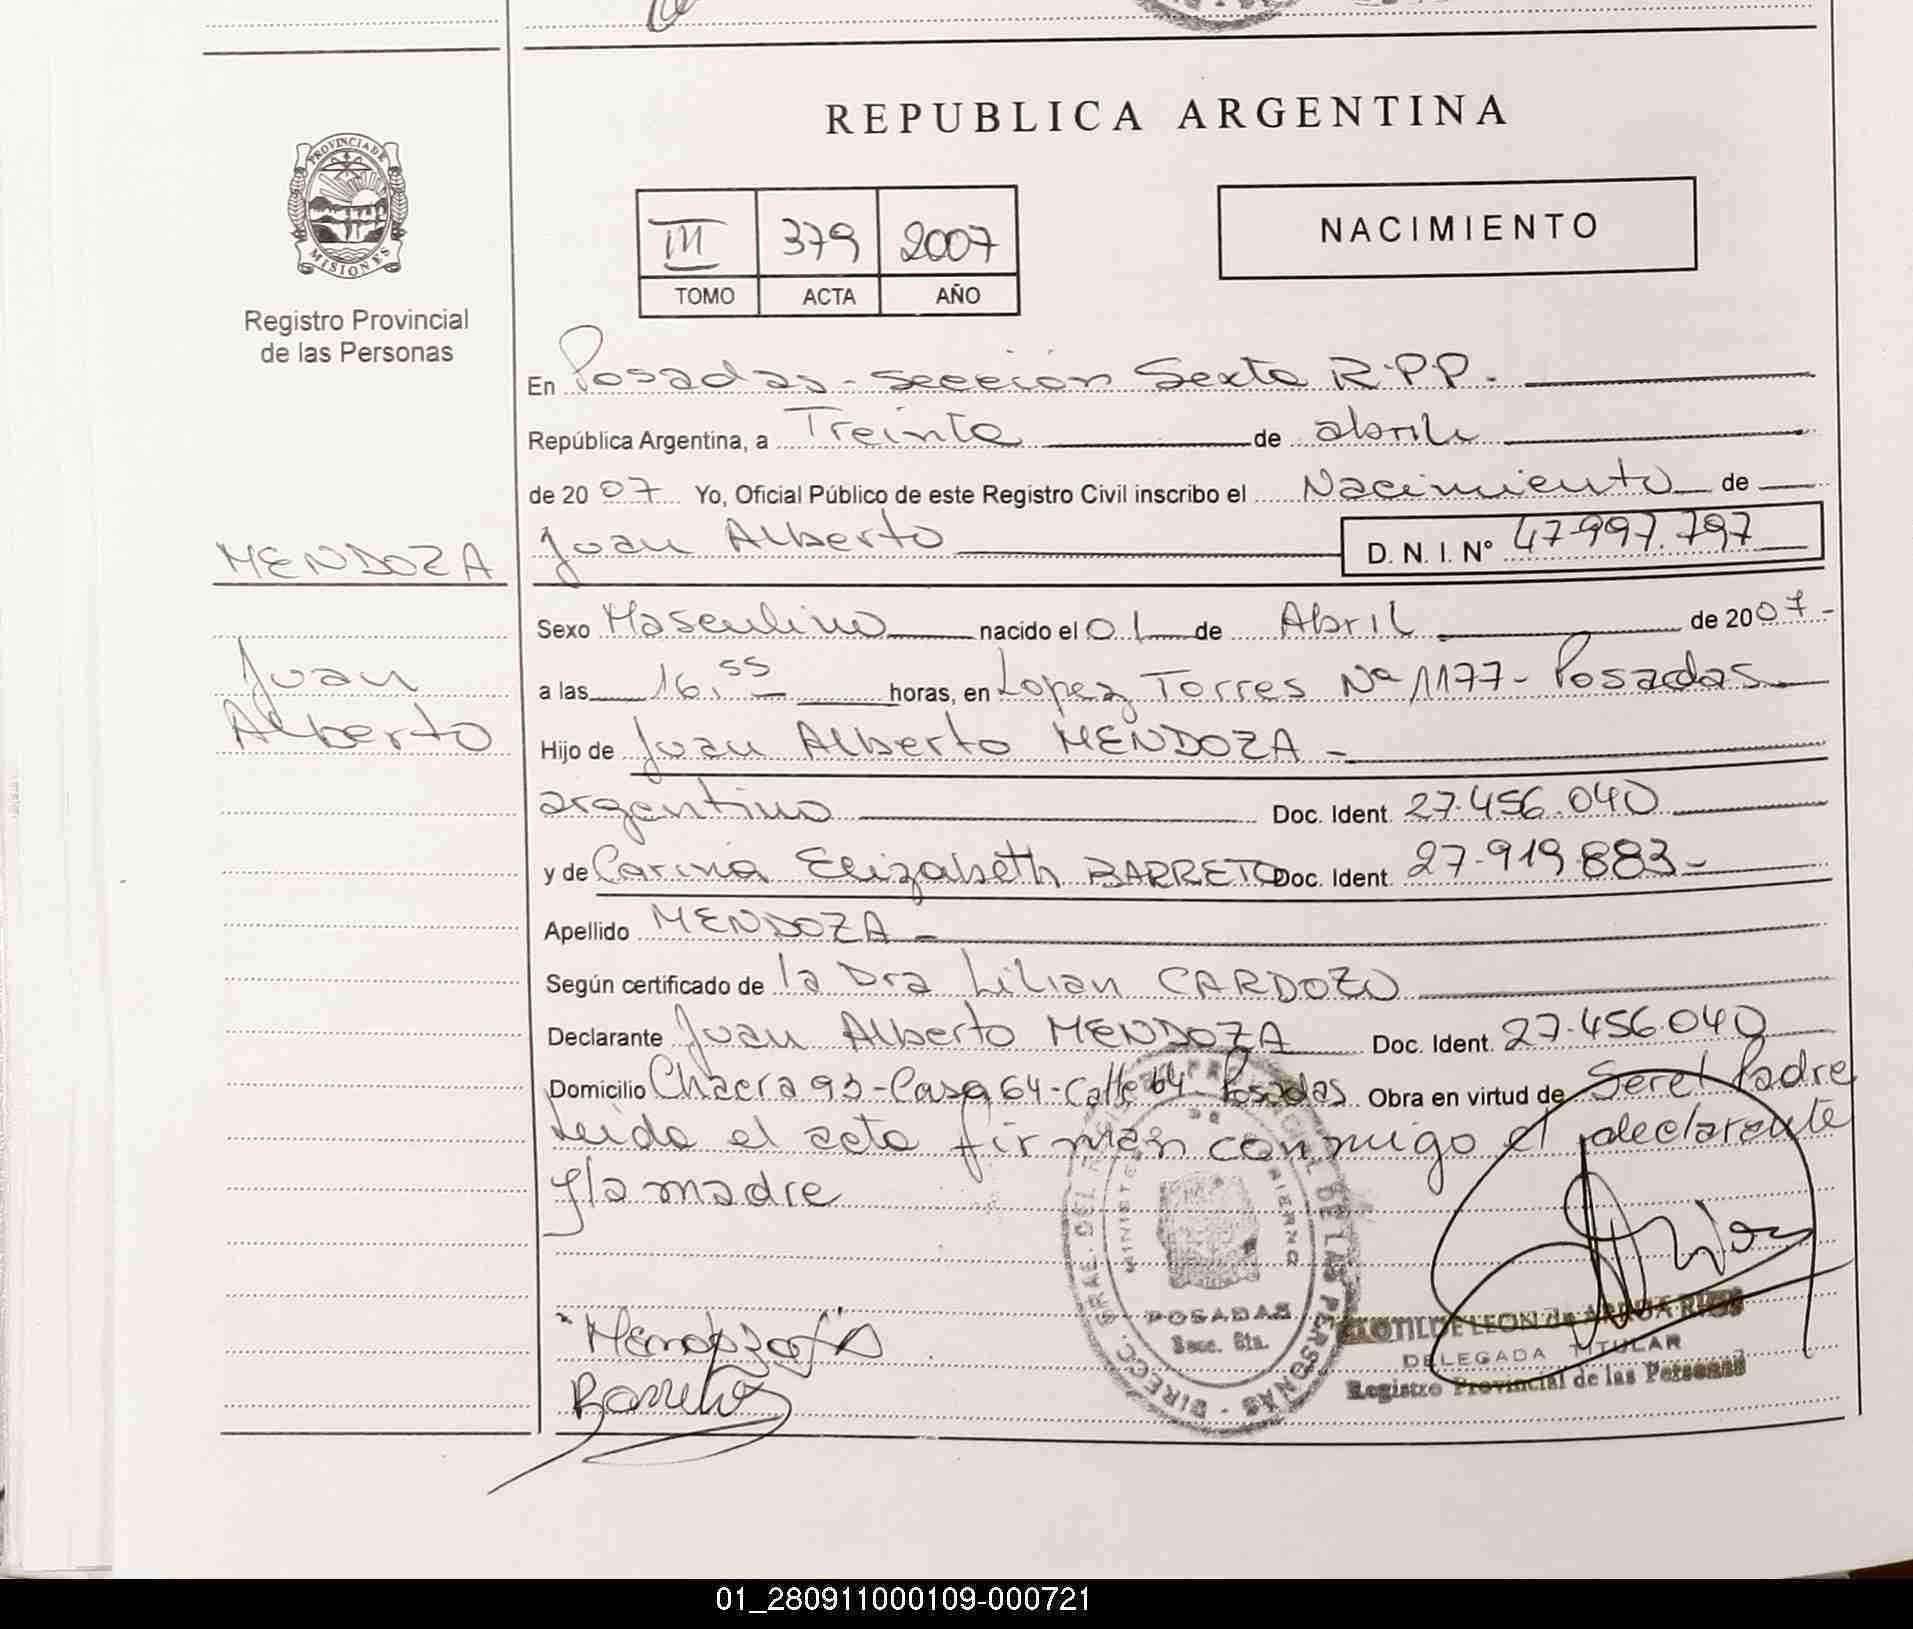 REPUBLICA ARGENTINA
PROVINCIA DE
MISIONES
Registro Provincial
de las Personas
III 379 2007
TOMO ACTA AÑO
NACIMIENTO
En Posadas - sección Sexta R.P.P.
República Argentina, a Treinta de abril
de 2007 Yo, Oficial Público de este Registro Civil inscribo el Nacimiento de
Juan Alberto D. N. I. Nº 47.997.797
MENDOZA
Juan
Alberto
Sexo Masculino nacido el 01 de Abril de 2007-
a las 16,55 horas, en Lopez Torres Nº 1177 - Posadas
Hijo de Juan Alberto MENDOZA -
argentino Doc. Ident. 27.456.040
y de Carina Elizabeth BARRETO Doc. Ident. 27.919.883-
Apellido MENDOZA -
Según certificado de la Dra Lilian CARDOZO
Declarante Juan Alberto MENDOZA Doc. Ident. 27.456.040
Domicilio Chacra 93 - Casa 64 - Calle 64 - Posadas Obra en virtud de Ser el Padre
Leida el acta firman conmigo el declarante
y la madre
POSADAS
Secc. 6ta.
CLOTILDE LEON de
DELEGADA TITULAR
Registro Provincial de las Personas
01_280911000109-000721